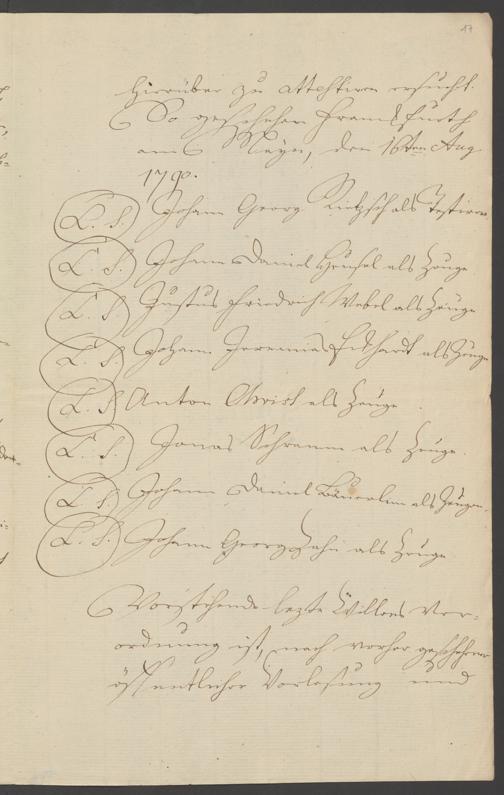 17
hierüber zu attestiren ersucht.
So geschehen Frankfurth
am Mayn, den 16ten Aug
1790.
L. S. Johann Georg als Testirer
L. S. Johann Daniel Henchel als Zeuge
L. S. Justus Friedrich Webel als Zeuge
L. S. Johann Jeremias Eckhardt als Zeuge
L. S. Anton Christ als Zeuge
L. S. Jonas Schramm als Zeuge.
L. S. Johann Daniel Bäuerlein als Zeugen.
L. S. Johann Georg Hahn als Zeuge
Vorstehende lezte Willens Ver-
ordnung ist, nach vorher geschehener
öffentlicher Vorlesung und